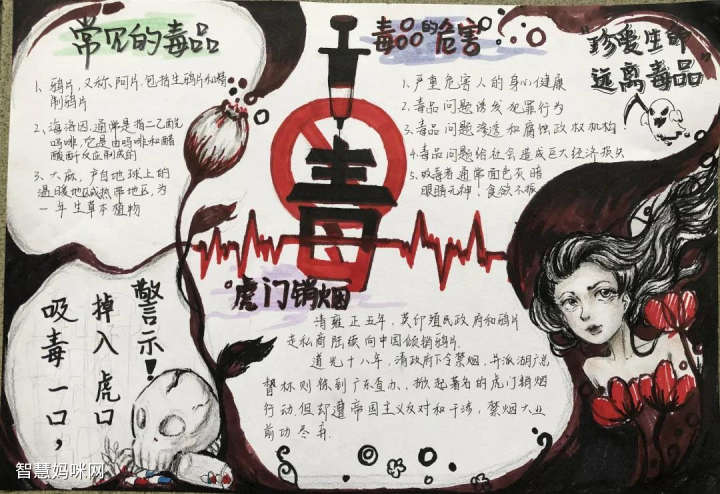 常见的毒品
1、鸦片,又称阿片.包括生鸦片和精
制鸦片
2、海洛因,通常是指二乙酰
吗啡,它是由吗啡和醋
酸酐反应制成的
3、大麻,产自地球上的
温暖地区或热带地区,为
一年生草本植物
毒品的危害
1.严重危害人的身心健康
2.毒品问题诱发犯罪行为
3.毒品问题渗透和腐蚀政权机构
4.毒品问题给社会造成巨大经济损失
5.吸毒者通常面色灰暗
眼睛无神,食欲不振
"珍爱生命
远离毒品"
毒
虎门销烟
清雍正五年,英印殖民政府和鸦片
走私商陆续向中国倾销鸦片.
道光十八年,清政府下令禁烟,并派湖广总
督林则徐到广东查办、掀起著名的虎门销烟
行动但却遭帝国主义反对和干涉,禁烟大业
前功尽弃.
警示!
吸毒一口,
掉入虎口
智慧妈咪网